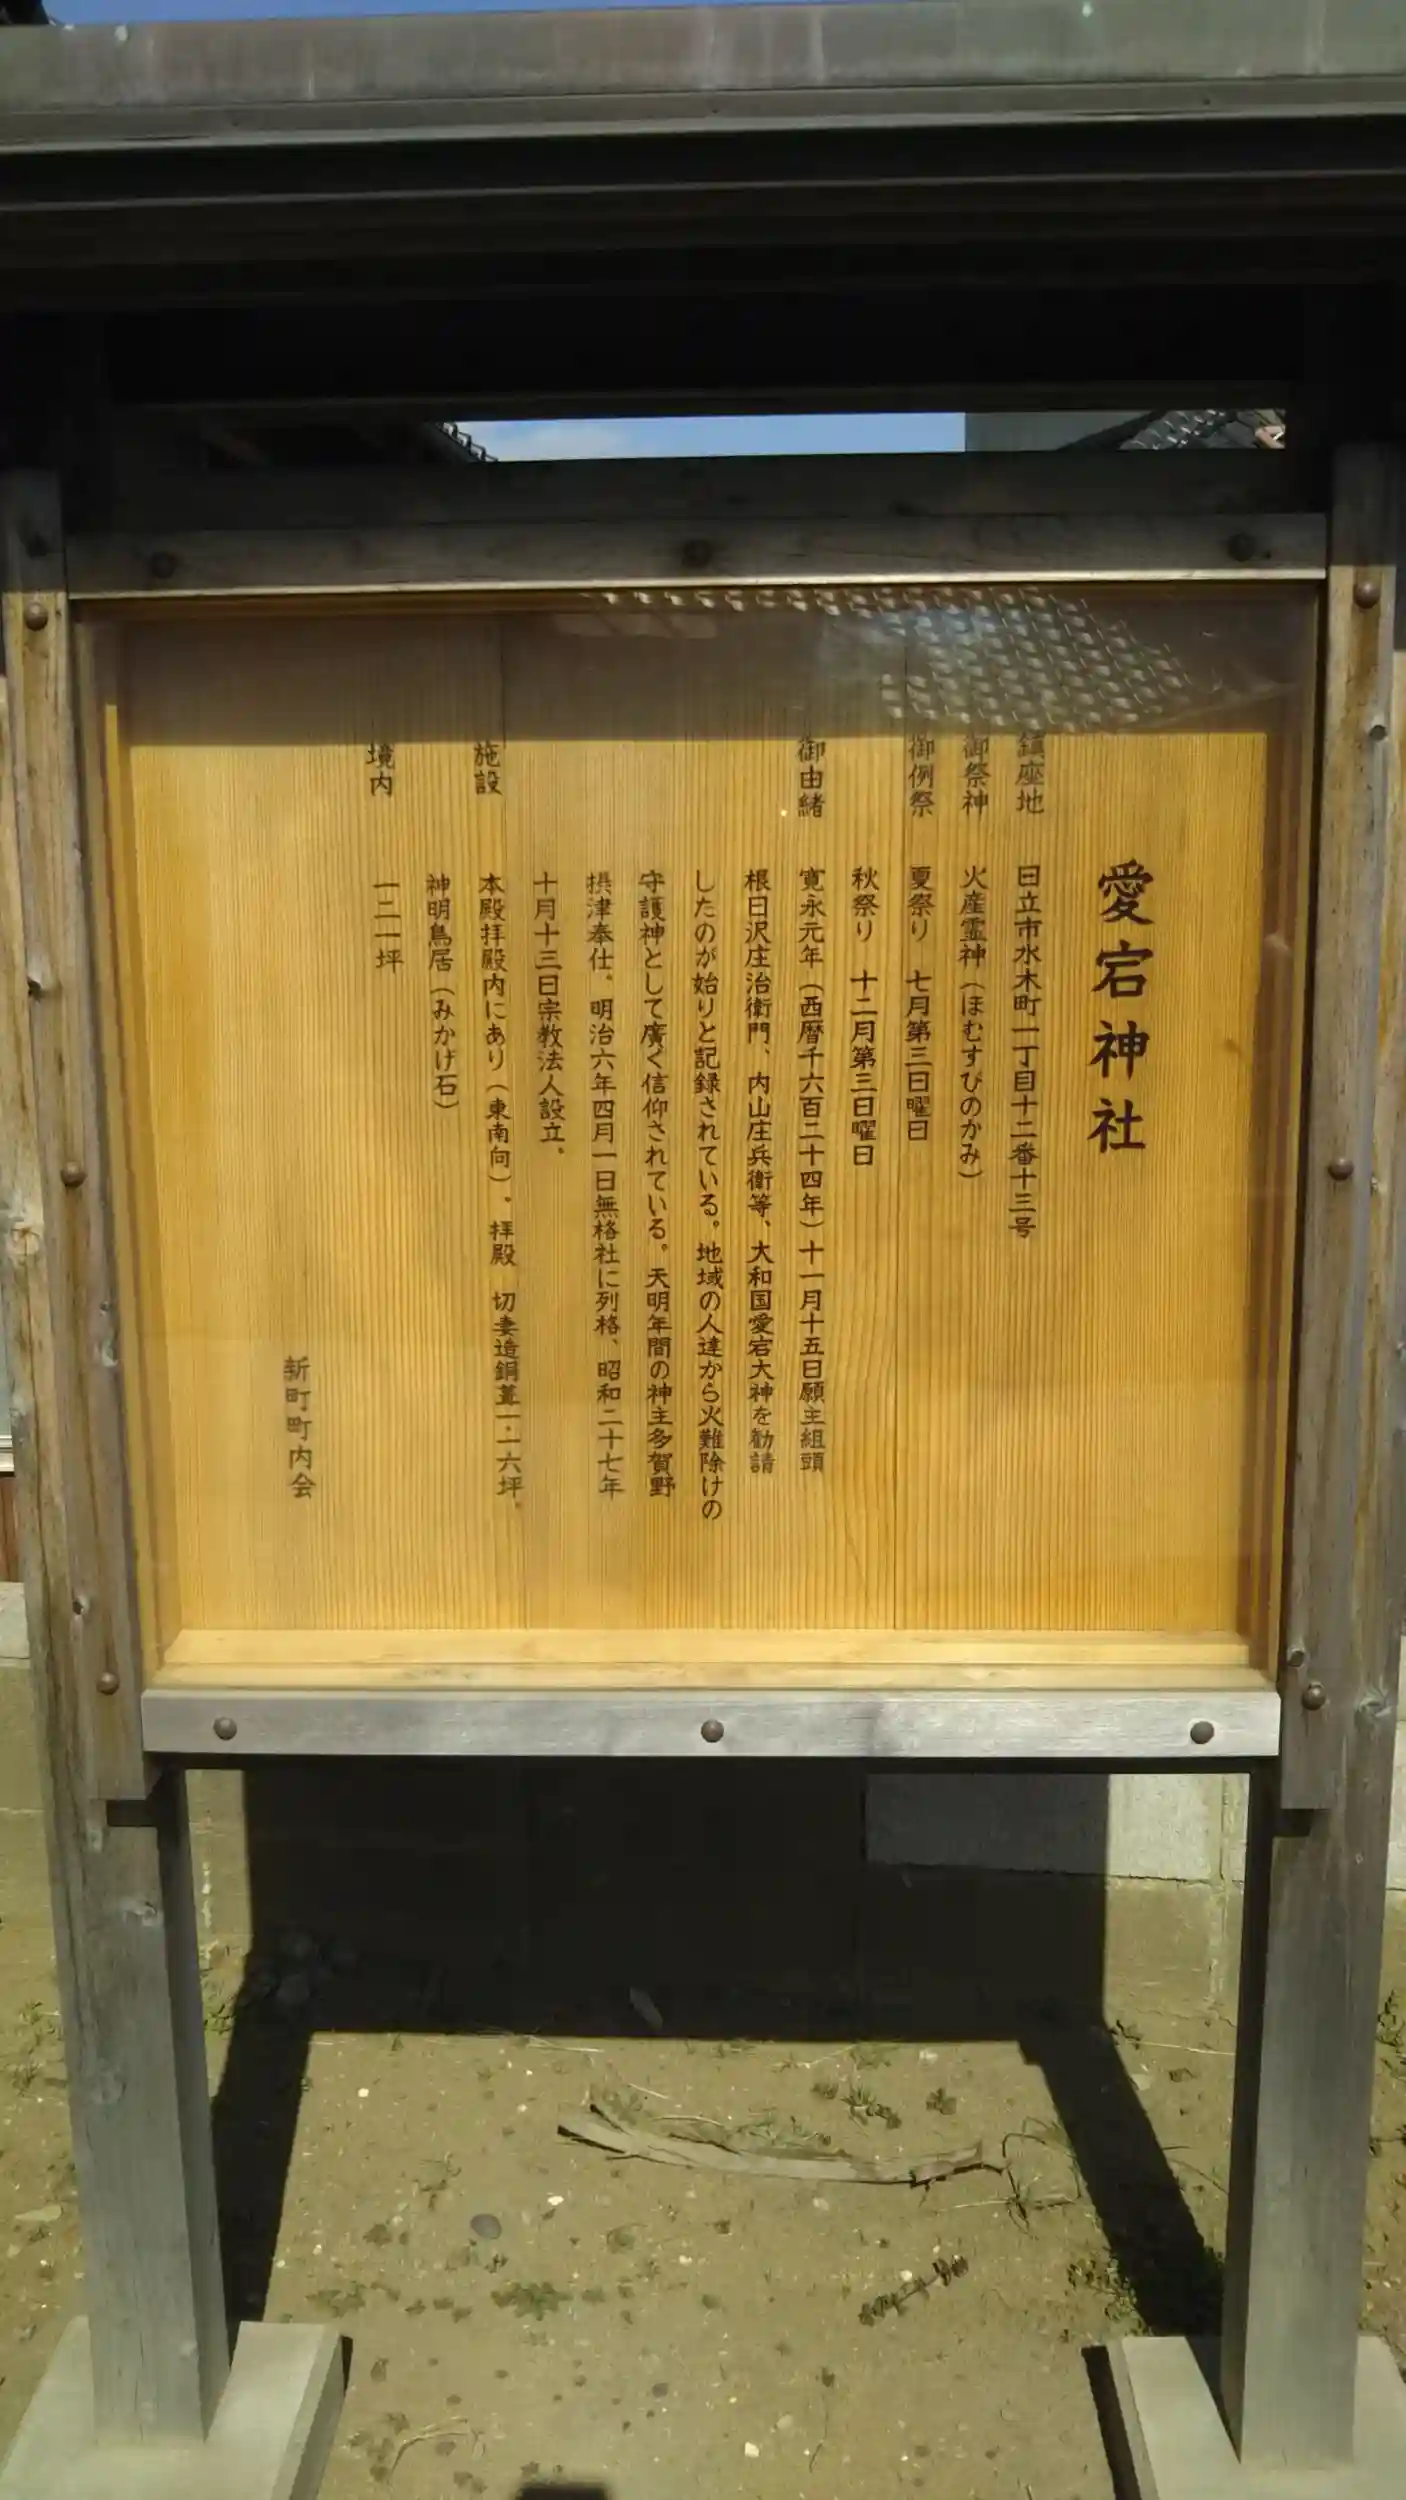 愛宕神社
鎮座地　日立市水木町一丁目十二番十三号
御祭神　火産霊神（ほむすびのかみ）
御例祭　夏祭り　七月第三日曜日
秋祭り　十二月第三日曜日
御由緒　寛永元年（西暦千六百二十四年）十一月十五日願主組頭
根日沢庄治衛門、内山庄兵衛等、大和国愛宕大神を勧請
したのが始りと記録されている。地域の人達から火難除けの
守護神として廣く信仰されている。天明年間の神主多賀野
摂津奉仕。明治六年四月一日無格社に列格、昭和二十七年
十月十三日宗教法人設立。
施設　本殿拝殿内にあり（東南向）。拝殿　切妻造銅葺一・一六坪。
神明鳥居（みかげ石）
境内　一二一坪
新町町内会